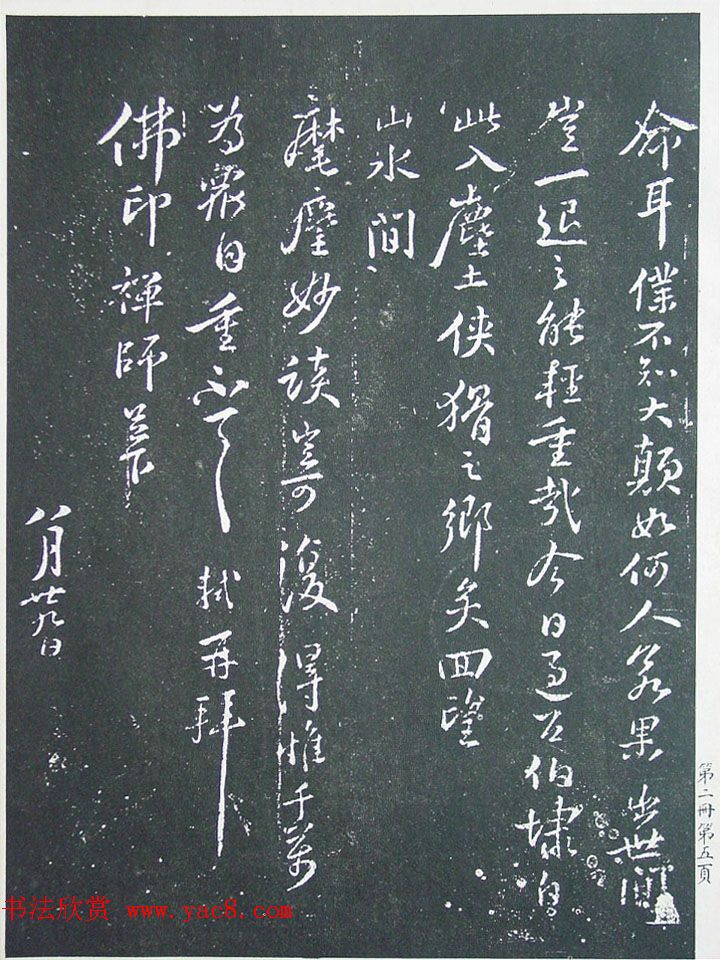 命耳僕不知大顛如何人若果出世間
豈一退之能輕重哉今日過召伯埭自
此入塵土俠猾之鄉矣回望
山水間
麾麈妙談豈可復得惟千萬
為衆自重不軾再拜
佛印禪師
八月廿九日
第二冊第五頁
书法欣赏 www.yac8.com